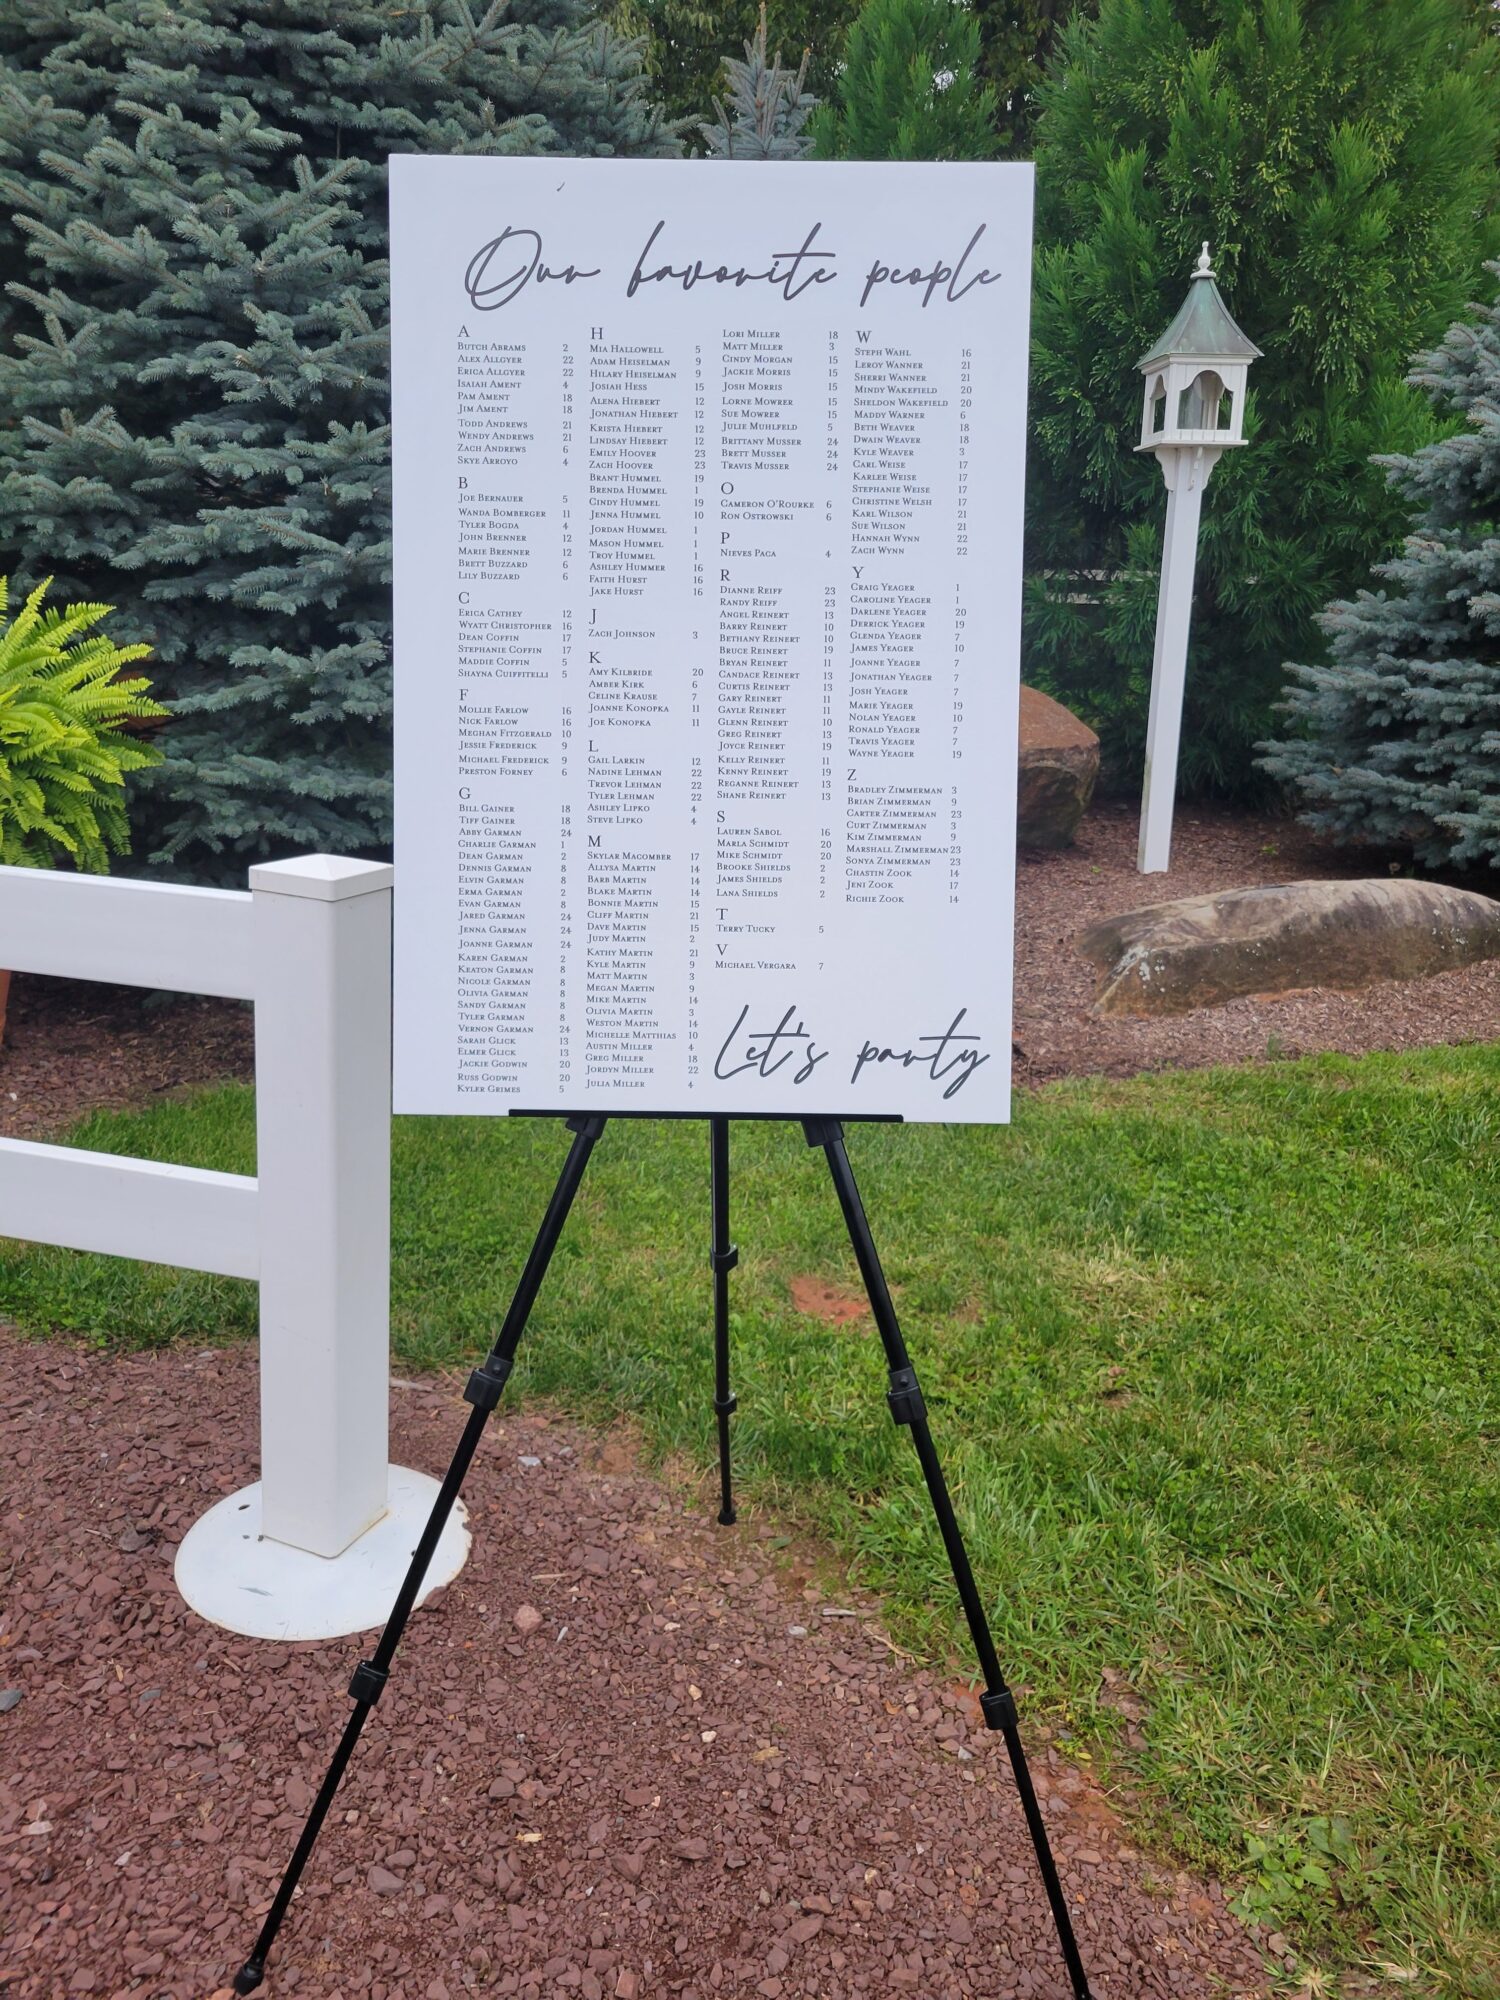 Our favorite people
A
Butch Abrams 2
Alex Allgyer 22
Erica Allgyer 22
Isaiah Ament 4
Pam Ament 18
Jim Ament 18
Todd Andrews 21
Wendy Andrews 21
Zach Andrews 6
Skye Arroyo 4
B
Joe Bernauer 5
Wanda Bomberger 11
Tyler Bogda 4
John Brenner 12
Marie Brenner 12
Brett Buzzard 6
Lily Buzzard 6
C
Erica Cathey 12
Wyatt Christopher 16
Dean Coffin 17
Stephanie Coffin 17
Maddie Coffin 5
Shayna Cuiffitelli 5
F
Mollie Farlow 16
Nick Farlow 16
Meghan Fitzgerald 10
Jessie Frederick 9
Michael Frederick 9
Preston Forney 6
G
Bill Gainer 18
Tiff Gainer 18
Abby Garman 24
Charlie Garman 1
Dean Garman 2
Dennis Garman 8
Elvin Garman 8
Erma Garman 2
Evan Garman 8
Jared Garman 24
Jenna Garman 24
Joanne Garman 24
Karen Garman 2
Keaton Garman 8
Nicole Garman 8
Olivia Garman 8
Sandy Garman 8
Tyler Garman 8
Vernon Garman 24
Sarah Glick 13
Elmer Glick 13
Jackie Godwin 20
Russ Godwin 20
Kyler Grimes 5
H
Mia Hallowell 5
Adam Heiselman 9
Hilary Heiselman 9
Josiah Hess 15
Alena Hiebert 12
Jonathan Hiebert 12
Krista Hiebert 12
Lindsay Hiebert 12
Emily Hoover 23
Zach Hoover 23
Brant Hummel 19
Brenda Hummel 1
Cindy Hummel 19
Jenna Hummel 10
Jordan Hummel 1
Mason Hummel 1
Troy Hummel 1
Ashley Hummer 16
Faith Hurst 16
Jake Hurst 16
J
Zach Johnson 3
K
Amy Kilbride 20
Amber Kirk 6
Celine Krause 7
Joanne Konopka 11
Joe Konopka 11
L
Gail Larkin 12
Nadine Lehman 22
Trevor Lehman 22
Tyler Lehman 22
Ashley Lipko 4
Steve Lipko 4
M
Skylar Macomber 17
Allysa Martin 14
Barb Martin 14
Blake Martin 14
Bonnie Martin 15
Cliff Martin 21
Dave Martin 15
Judy Martin 2
Kathy Martin 21
Kyle Martin 9
Matt Martin 3
Megan Martin 9
Mike Martin 14
Olivia Martin 3
Weston Martin 14
Michelle Matthias 10
Austin Miller 4
Greg Miller 18
Jordyn Miller 22
Julia Miller 4
Lori Miller 18
Matt Miller 3
Cindy Morgan 15
Jackie Morris 15
Josh Morris 15
Lorne Mowrer 15
Sue Mowrer 15
Julie Muhlfeld 5
Brittany Musser 24
Brett Musser 24
Travis Musser 24
O
Cameron O'Rourke 6
Ron Ostrowski 6
P
Nieves Paca 4
R
Dianne Reiff 23
Randy Reiff 23
Angel Reinert 13
Barry Reinert 10
Bethany Reinert 10
Bruce Reinert 19
Bryan Reinert 11
Candace Reinert 13
Curtis Reinert 13
Gary Reinert 11
Gayle Reinert 11
Glenn Reinert 10
Greg Reinert 13
Joyce Reinert 19
Kelly Reinert 11
Kenny Reinert 19
Reganne Reinert 13
Shane Reinert 13
S
Lauren Sabol 16
Marla Schmidt 20
Mike Schmidt 20
Brooke Shields 2
James Shields 2
Lana Shields 2
T
Terry Tucky 5
V
Michael Vergara 7
W
Steph Wahl 16
Leroy Wanner 21
Sherri Wanner 21
Mindy Wakefield 20
Sheldon Wakefield 20
Maddy Warner 6
Beth Weaver 18
Dwain Weaver 18
Kyle Weaver 3
Carl Weise 17
Karlee Weise 17
Stephanie Weise 17
Christine Welsh 17
Karl Wilson 21
Sue Wilson 21
Hannah Wynn 22
Zach Wynn 22
Y
Craig Yeager 1
Caroline Yeager 1
Darlene Yeager 20
Derrick Yeager 19
Glenda Yeager 7
James Yeager 10
Joanne Yeager 7
Jonathan Yeager 7
Josh Yeager 7
Marie Yeager 19
Nolan Yeager 10
Ronald Yeager 7
Travis Yeager 7
Wayne Yeager 19
Z
Bradley Zimmerman 3
Brian Zimmerman 9
Carter Zimmerman 23
Curt Zimmerman 3
Kim Zimmerman 9
Marshall Zimmerman 23
Sonya Zimmerman 23
Chastin Zook 14
Jeni Zook 17
Richie Zook 14
Let's party